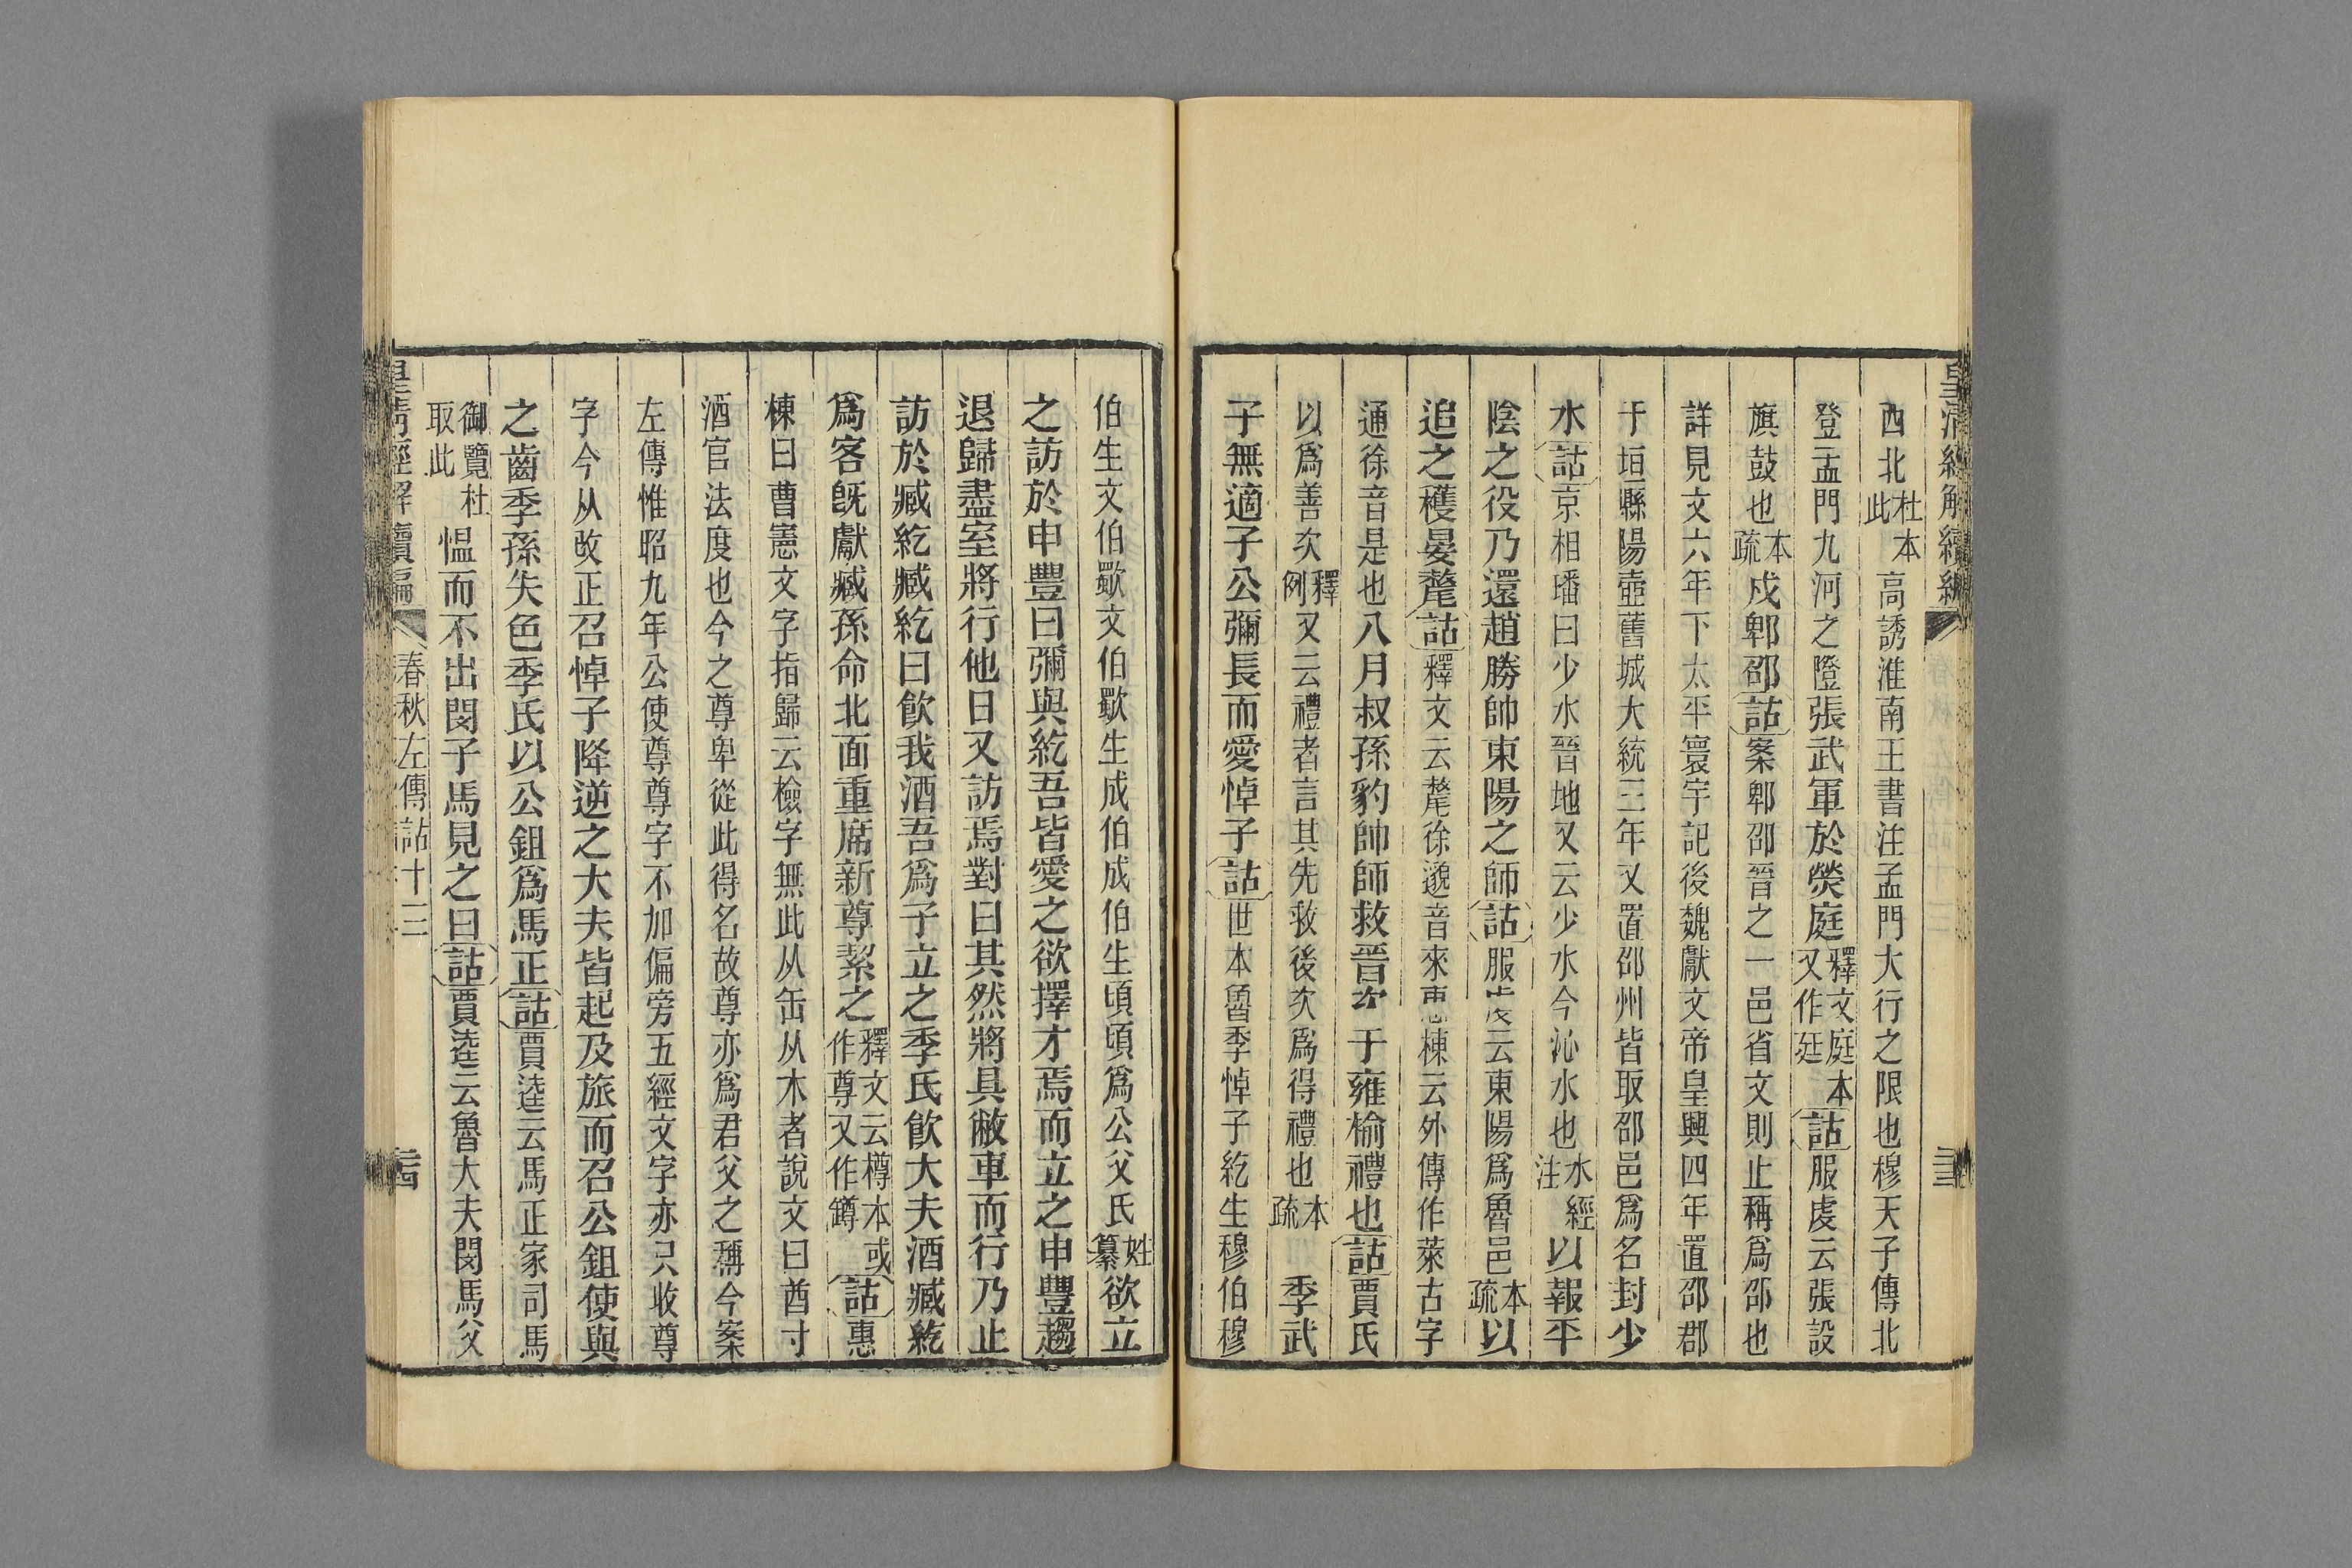 西北杜本此高誘淮南王書注孟門大行之限也穆天子傳北
登孟門九河之隥張武軍於熒庭釋文庭本又作廷詁服虔云張設
旗鼓也本疏戍郫邵詁案郫邵晉之一邑省文則止稱爲邵也
詳見文六年下太平寰宇記後魏獻文帝皇興四年置邵郡
于垣縣陽壺舊城大統三年又置邵州皆取邵邑爲名封少
水詁京相璠曰少水晉地又云少水今沁水也水經注以報平
陰之役乃還趙勝帥東陽之師詁服云東陽爲魯邑本疏以
追之獲晏氂詁釋文云氂徐邈音來惠棟云外傳作萊古字
通徐音是也八月叔孫豹帥師救晉次于雍榆禮也詁賈氏
以爲善次釋例又云禮者言其先救後次爲得禮也本疏季武
子無適子公彌長而愛悼子詁世本魯季悼子紇生穆伯穆
伯生文伯歜文伯歜生成伯成伯生頃頃爲公父氏姓纂欲立
之訪於申豐曰彌與紇吾皆愛之欲擇才焉而立之申豐趨
退歸盡室將行他日又訪焉對曰其然將具敝車而行乃止
訪於臧紇臧紇曰飮我酒吾爲子立之季氏飮大夫酒臧紇
爲客旣獻臧孫命北面重席新尊絜之釋文云樽本或作尊又作罇詁惠
棟曰曹憲文字指歸云檢字無此从缶从木者說文曰酋寸
酒官法度也今之尊卑從此得名故尊亦爲君父之稱今案
左傳惟昭九年公使尊尊字不加偏旁五經文字亦只收尊
字今从改正召悼子降逆之大夫皆起及旅而召公鉏使與
之齒季孫失色季氏以公鉏爲馬正詁賈逵云馬正家司馬
御覽杜取此慍而不出閔子馬見之曰詁賈逵云魯大夫閔馬父
皇淸經解續編 春秋左傳詁十三 二十四